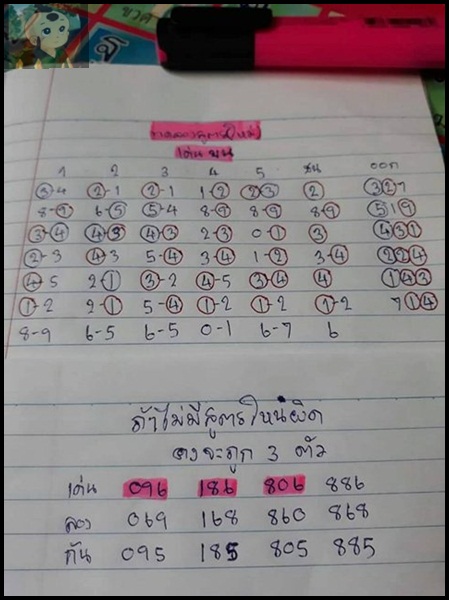 ทดลองสูตรใหม่
เด่น บน
1 2 3 4 5 ชน ออก
3-4 2-1 2-1 1-2 2-3 2 327
8-9 6-5 5-4 8-9 8-9 8-9 519
3-4 4-3 4-3 2-3 0-1 3 431
2-3 4-3 5-4 3-4 1-2 3-4 224
4-5 2-1 3-2 4-5 3-4 4 143
1-2 2-1 5-4 1-2 1-2 1-2 714
8-9 6-5 6-5 0-1 6-7 6
ถ้าไม่มีสูตรไหนผิด
คงจะถูก 3 ตัว
เด่น 096 186 806 886
ลอง 069 168 860 868
กัน 095 185 805 885